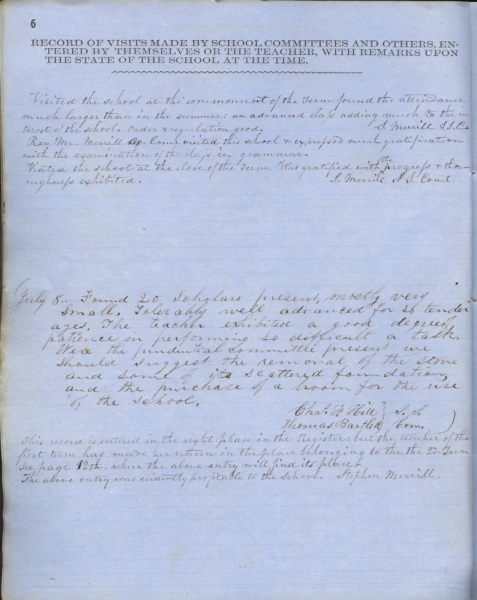 6
RECORD OF VISITS MADE BY SCHOOL COMMITTEES AND OTHERS, EN-
TERED BY THEMSELVES OR THE TEACHER, WITH REMARKS UPON
THE STATE OF THE SCHOOL AT THE TIME.
Visited the school at the commencment of the Term found the attendance
much larger than in the summer: an advanced class adding much to the in
terest of the school. Order & regulation good. S. Merrill S.S.C.
Rev. Mr. Merrill Com. visited the school & expressed much gratification
with the examination of the class in grammar.
Visited the school at the close of the Term. Was gratified with the progress & tho-
roughness exhibited. S. Merrill S.S. Comt.
July 8. Found 20 Scholars present, mostly very
small. Tolerably well advanced for so tender
age. The teacher exhibited a good degree
patience in performing so difficult a task.
Were the prudential committee present we
should suggest the removal of the stove
and some of its scattered foundation,
and the purchase of a broom for the use
of the school.
Chas. F. Hill S. S.
Thomas Bartlett Com.
This record is entered in the right place in the Register but the teacher of the
first term has made her return in the place belonging to the the 2d Term
See page 12th. where the above entry will find its place.
The above entry was evidently profitable to the school. Stephen Merrill.